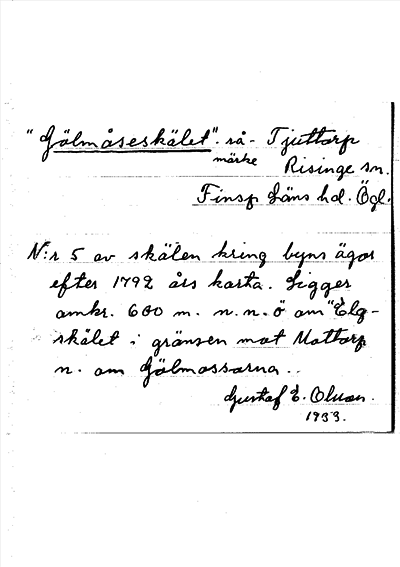 "Gölmåseskälet". rå- Tjuttorp
märke Risinge sn.
Finsp Läns hd. Ögl.
N:r 5 av skälen kring byns ägor
efter 1792 års karta. Ligger
omkr. 600 m. n.n.ö om "Elg-
skälet i gränsen mot Mattorp
n. om Gölmossarna..
Gustaf E. Olson.
1933.